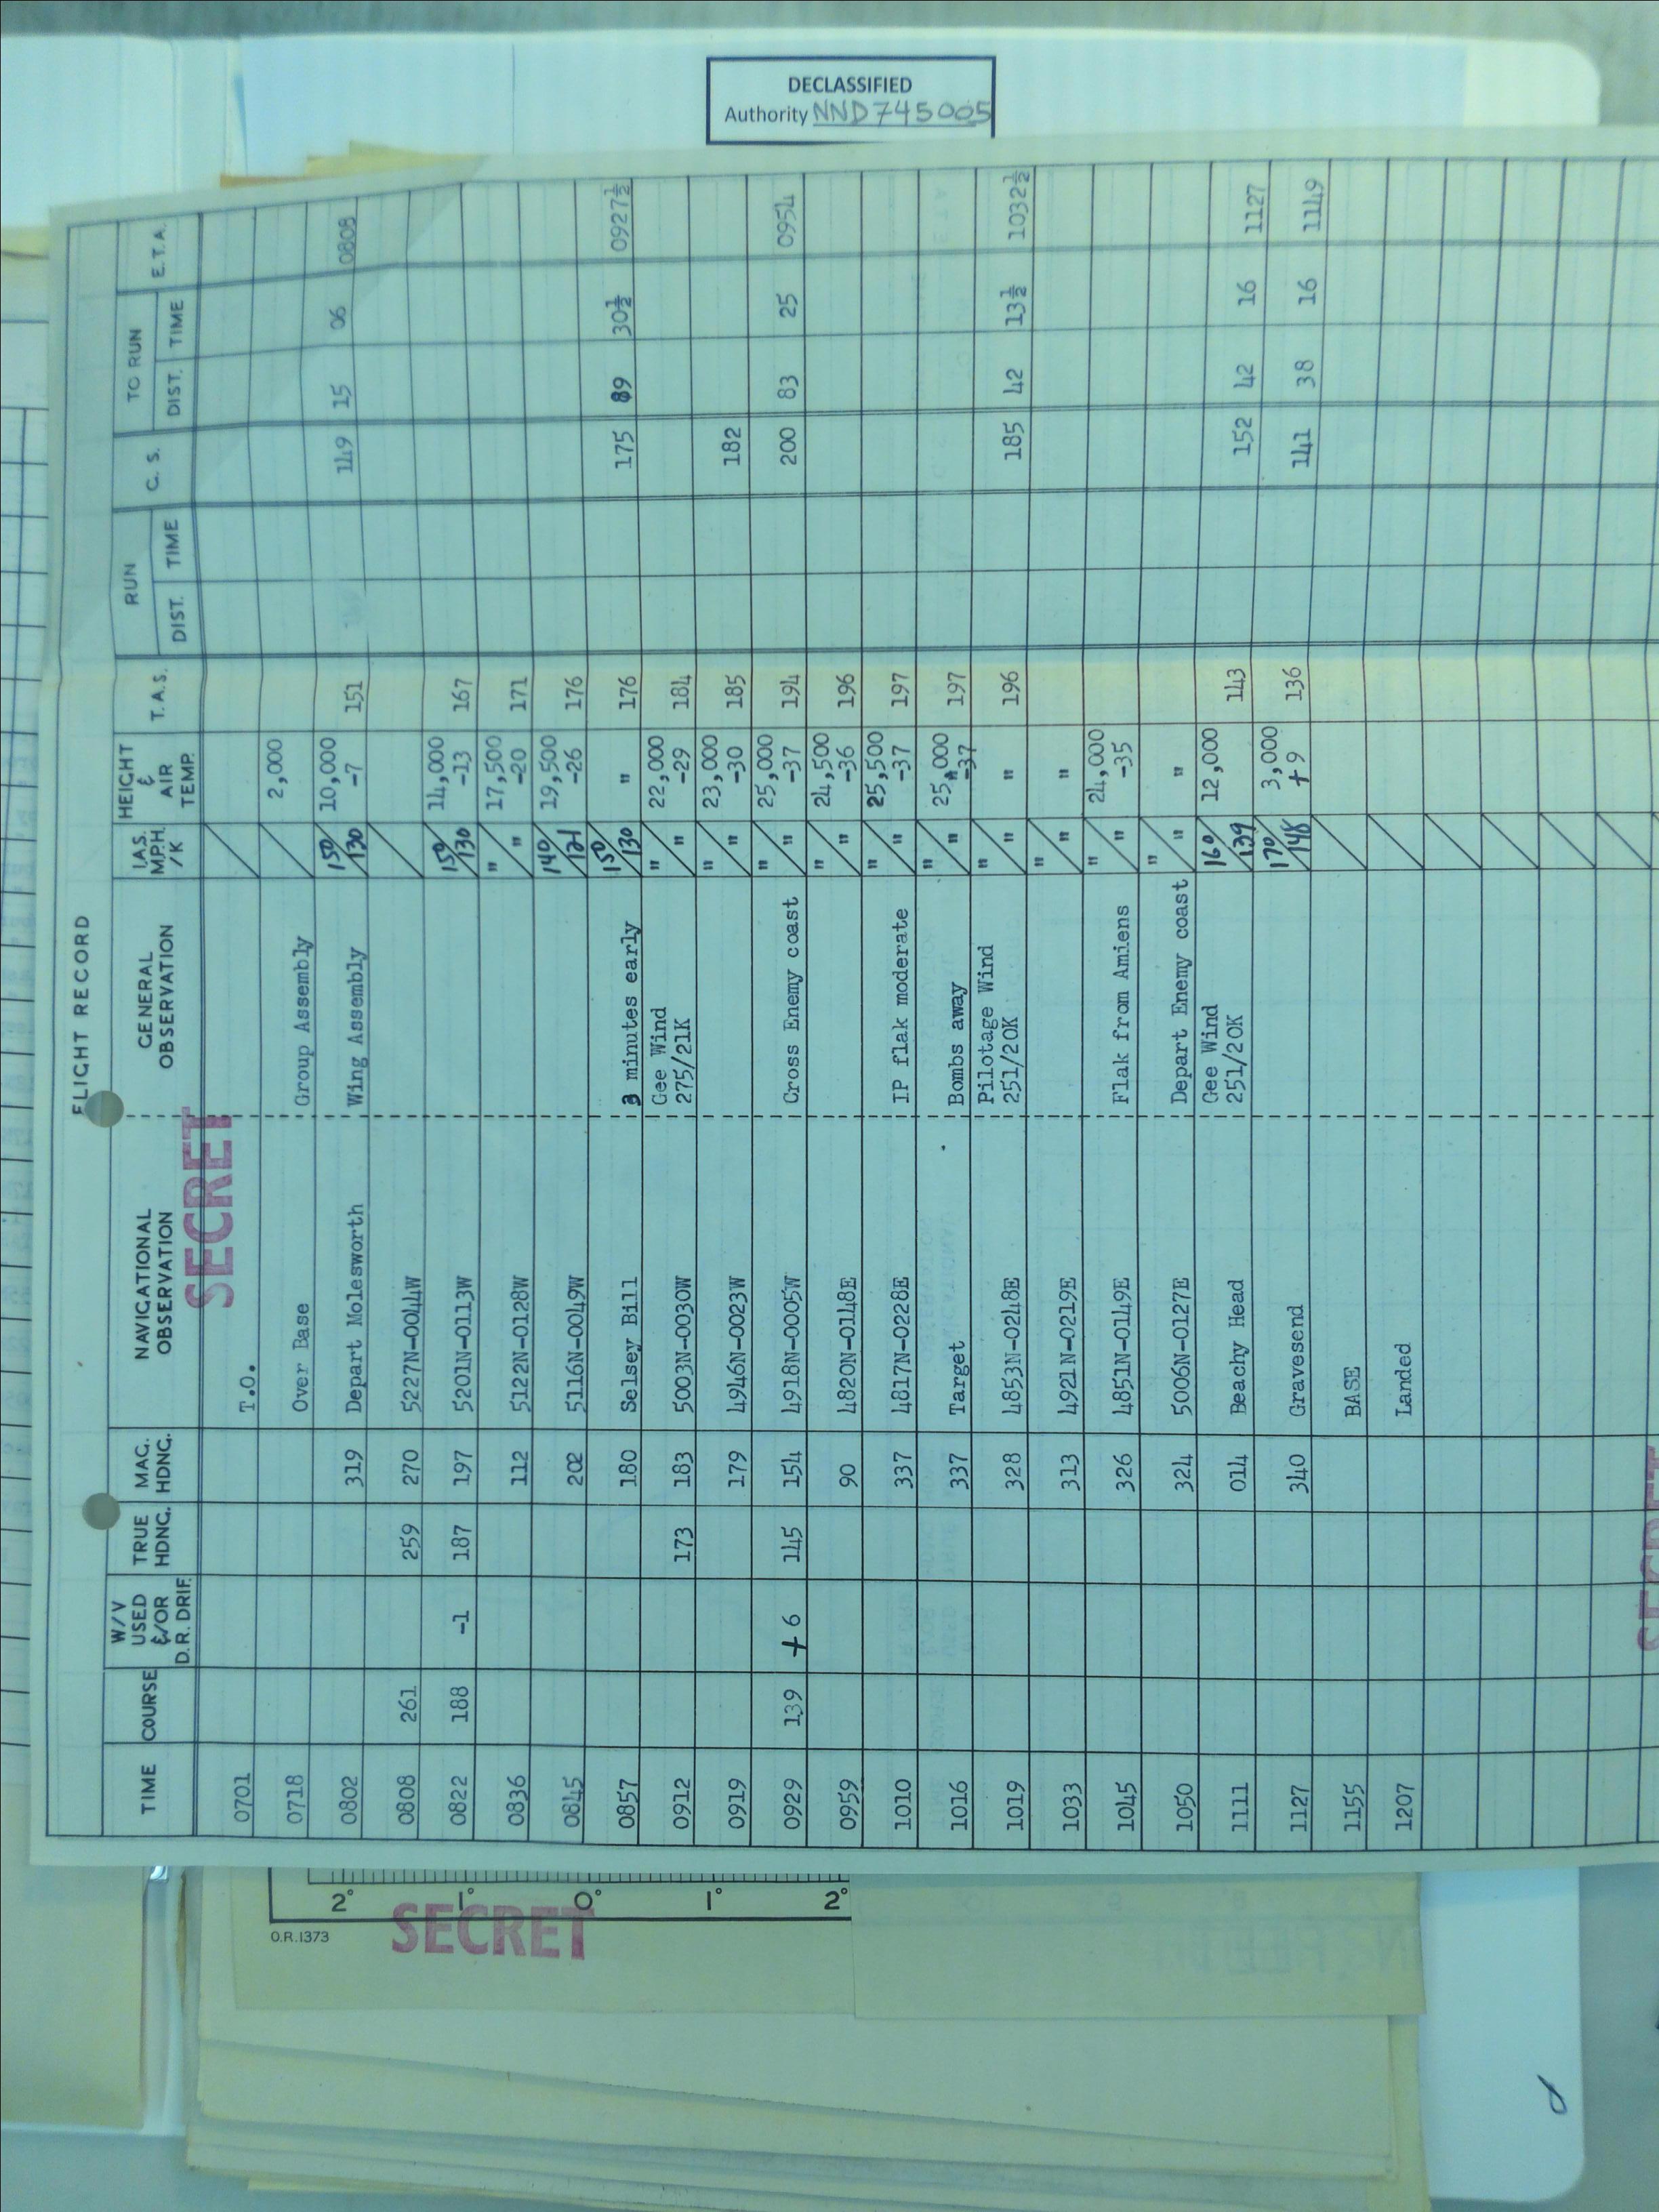 DECLASSIFIED
Authority NND745005
FLIGHT RECORD
TIME COURSE W/V USED &/OR D.R. DRIF. TRUE HDNG. MAG. HDNG. NAVIGATIONAL OBSERVATION GENERAL OBSERVATION I.A.S. M.P.H. /K HEIGHT & AIR TEMP. T.A.S. RUN DIST. TIME G. S. TO RUN DIST. TIME E.T.A.
SECRET
0701 T.O.
0718 Over Base Group Assembly 2,000
0802 319 Depart Molesworth Wing Assembly 150/130 10,000 -7 151 149 15 06 0808
0808 261 259 270 5227N-0044W
0822 188 -1 187 197 5201N-0113W 150/130 14,000 -13 167
0836 112 5122N-0128W " " 17,500 -20 171
0845 202 5116N-0049W 140/121 19,500 -26 176
0857 180 Selsey Bill 3 minutes early 150/130 " 176 175 89 30½ 0927½
0912 173 183 5003N-0030W Gee Wind 275/21K " " 22,000 -29 184
0919 179 4946N-0023W " " 23,000 -30 185 182
0929 139 +6 145 154 4918N-0005W Cross Enemy coast " " 25,000 -37 194 200 83 25 0954
0959 90 4820N-0148E " " 24,500 -36 196
1010 337 4817N-0228E IP flak moderate " " 25,500 -37 197
1016 337 Target Bombs away " " 25,000 -37 197
1019 328 4853N-0248E Pilotage Wind 251/20K " " " 196 185 42 13½ 1032½
1033 313 4921N-0219E " " "
1045 326 4851N-0149E Flak from Amiens " " 24,000 -35
1050 324 5006N-0127E Depart Enemy coast " " "
1111 014 Beachy Head Gee Wind 251/20K 160/139 12,000 143 152 42 16 1127
1127 340 Gravesend 170/148 3,000 +9 136 141 38 16 1149
1155 BASE
1207 Landed
SECRET
2° 1° 0° 1° 2°
O.R.1373
SECRET